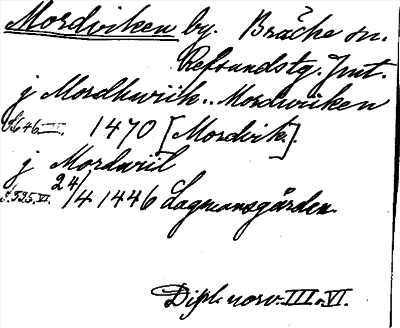 Mordviken by. Bräcke sn.
Refsundstg. Jmt.
j Mordhwiik.. Mordwiiken
S. 646 III. 1470 [Mordvik].
j Mordwiil
S. 535. VI. 24/4 1446 Lagmansgården.
Dipl. norv. III o. VI.